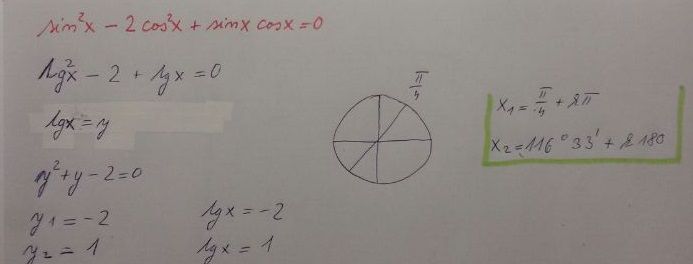 sin²x - 2cos²x + sinx cosx = 0
tg²x - 2 + tgx = 0
tgx = y
y² + y - 2 = 0
y1 = -2
y2 = 1
tgx = -2
tgx = 1
π/4
x1 = π/4 + kπ
x2 = 116° 33' + k 180